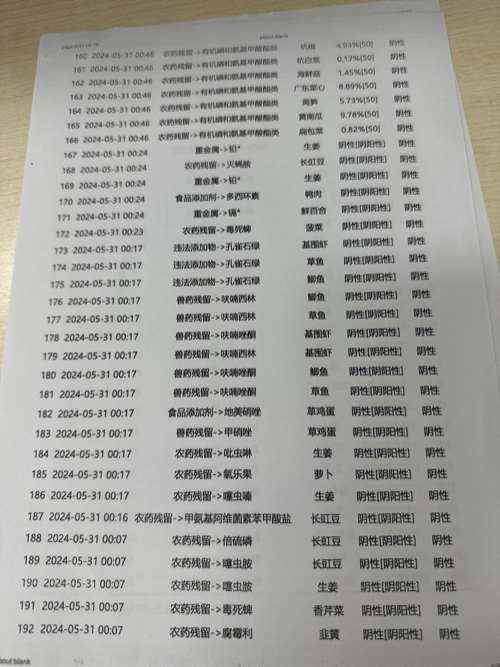 about:blank
160 2024-05-31 00:46 农药残留->有机磷和氨基甲酸酯类 杭椒 4.93%[50] 阴性
161 2024-05-31 00:46 农药残留->有机磷和氨基甲酸酯类 杭白菜 0.17%[50] 阴性
162 2024-05-31 00:46 农药残留->有机磷和氨基甲酸酯类 海鲜菇 1.45%[50] 阴性
163 2024-05-31 00:46 农药残留->有机磷和氨基甲酸酯类 广东菜心 8.89%[50] 阴性
164 2024-05-31 00:46 农药残留->有机磷和氨基甲酸酯类 莴笋 5.73%[50] 阴性
165 2024-05-31 00:46 农药残留->有机磷和氨基甲酸酯类 黄南瓜 9.78%[50] 阴性
166 2024-05-31 00:46 农药残留->有机磷和氨基甲酸酯类 扁包菜 0.82%[50] 阴性
167 2024-05-31 00:24 重金属->铅* 生姜 阴性[阴阳性] 阴性
168 2024-05-31 00:24 农药残留->灭蝇胺 长豇豆 阴性[阴阳性] 阴性
169 2024-05-31 00:24 重金属->铅* 生姜 阴性[阴阳性] 阴性
170 2024-05-31 00:24 食品添加剂->多西环素 鸭肉 阴性[阴阳性] 阴性
171 2024-05-31 00:24 重金属->镉* 鲜百合 阴性[阴阳性] 阴性
172 2024-05-31 00:23 农药残留->毒死蜱 菠菜 阴性[阴阳性] 阴性
173 2024-05-31 00:17 违法添加物->孔雀石绿 基围虾 阴性[阴阳性] 阴性
174 2024-05-31 00:17 违法添加物->孔雀石绿 草鱼 阴性[阴阳性] 阴性
175 2024-05-31 00:17 违法添加物->孔雀石绿 鲫鱼 阴性[阴阳性] 阴性
176 2024-05-31 00:17 兽药残留->呋喃西林 鲫鱼 阴性[阴阳性] 阴性
177 2024-05-31 00:17 兽药残留->呋喃西林 草鱼 阴性[阴阳性] 阴性
178 2024-05-31 00:17 兽药残留->呋喃唑酮 基围虾 阴性[阴阳性] 阴性
179 2024-05-31 00:17 兽药残留->呋喃西林 基围虾 阴性[阴阳性] 阴性
180 2024-05-31 00:17 兽药残留->呋喃唑酮 鲫鱼 阴性[阴阳性] 阴性
181 2024-05-31 00:17 兽药残留->呋喃唑酮 草鱼 阴性[阴阳性] 阴性
182 2024-05-31 00:17 食品添加剂->地美硝唑 草鸡蛋 阴性[阴阳性] 阴性
183 2024-05-31 00:17 兽药残留->甲硝唑 草鸡蛋 阴性[阴阳性] 阴性
184 2024-05-31 00:17 农药残留->吡虫啉 生姜 阴性[阴阳性] 阴性
185 2024-05-31 00:17 农药残留->氧乐果 萝卜 阴性[阴阳性] 阴性
186 2024-05-31 00:17 农药残留->噻虫嗪 生姜 阴性[阴阳性] 阴性
187 2024-05-31 00:16 农药残留->甲氨基阿维菌素苯甲酸盐 长豇豆 阴性[阴阳性] 阴性
188 2024-05-31 00:07 农药残留->倍硫磷 长豇豆 阴性[阴阳性] 阴性
189 2024-05-31 00:07 农药残留->噻虫胺 长豇豆 阴性[阴阳性] 阴性
190 2024-05-31 00:07 农药残留->噻虫胺 生姜 阴性[阴阳性] 阴性
191 2024-05-31 00:07 农药残留->毒死蜱 香芹菜 阴性[阴阳性] 阴性
192 2024-05-31 00:07 农药残留->腐霉利 韭黄 阴性[阴阳性] 阴性
bout:blank